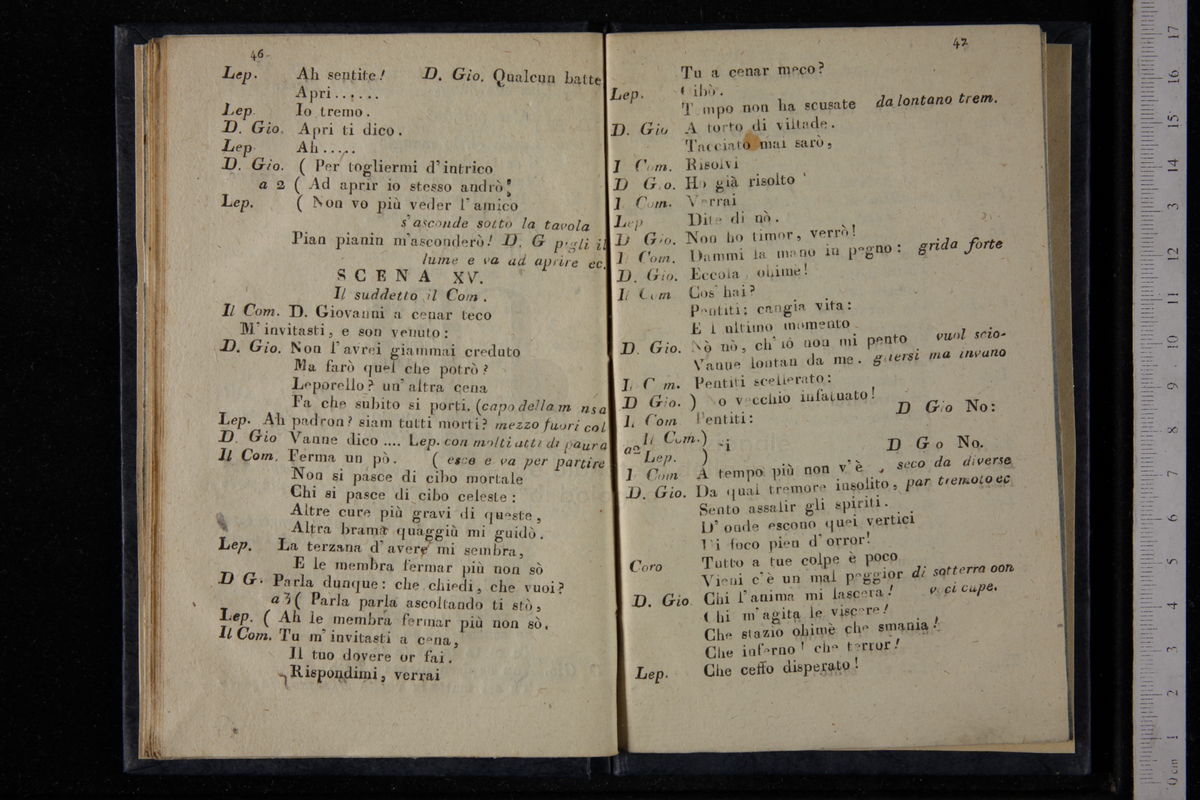 46
Lep. Ah sentite! D. Gio. Qualcun batte
Apri......
Lep. Io tremo.
D. Gio. Apri ti dico.
Lep Ah.....
D. Gio. ( Per togliermi d'intrico
a 2 ( Ad aprir io stesso andrò
Lep. ( Non vo più veder l'amico
s'asconde sotto la tavola
Pian pianin m'asconderò! D. G pigli il
lume e va ad aprire ec.
SCENA XV.
Il suddetto il Com.
Il Com. D. Giovanni a cenar teco
M'invitasti, e son venuto:
D. Gio. Non l'avrei giammai creduto
Ma farò quel che potrò?
Leporello? un'altra cena
Fa che subito si porti. (capo della m nsa
Lep. Ah padron? siam tutti morti? mezzo fuori col
D. Gio Vanne dico .... Lep. con molti atti di paura
Il Com. Ferma un pò. ( esce e va per partire
Non si pasce di cibo mortale
Chi si pasce di cibo celeste:
Altre cure più gravi di queste,
Altra brama quaggiù mi guidò.
Lep. La terzana d'avere mi sembra,
E le membra fermar più non sò
D G. Parla dunque: che chiedi, che vuoi?
a 3 ( Parla parla ascoltando ti stò,
Lep. ( Ah le membra fermar più non sò.
Il Com. Tu m'invitasti a cena,
Il tuo dovere or fai.
Rispondimi, verrai
47
Tu a cenar meco?
Lep. ibò.
T mpo non ha scusate da lontano trem.
D. Gio A torto di viltade.
Tacciato mai sarò,
I Com. Risolvi
D G o. Ho già risolto
I Com. Verrai
Lep Dite di nò.
D Gio. Non ho timor, verrò!
Il Com. Dammi la mano in pegno: grida forte
D. Gio. Eccola ohimè!
Il Com Cos' hai?
Pentiti; cangia vita:
E l ultimo momento
D. Gio. Nò nò, ch'iò non mi pento vuol scio-
Vanne lontan da me. gliersi ma invano
Il C m. Pentiti scellerato:
D Gio. ) No vecchio infatuato!
Il Com Pentiti: D Gio No:
a2 Il Com.) Si
Lep. ) D G o No.
Il Com A tempo più non v'è seco da diverse
D. Gio. Da qual tremore insolito, par tremoto ec
Sento assalir gli spiriti.
D' onde escono quei vertici
Di foco pien d'orror!
Coro Tutto a tue colpe è poco
Vieni c'è un mal peggior di sotterra con
D. Gio Chi l'anima mi lascera! v ci cupe.
Chi m'agita le viscere!
Che stazio ohimè che smania!
Che inferno! che terror!
Lep. Che ceffo disperato!